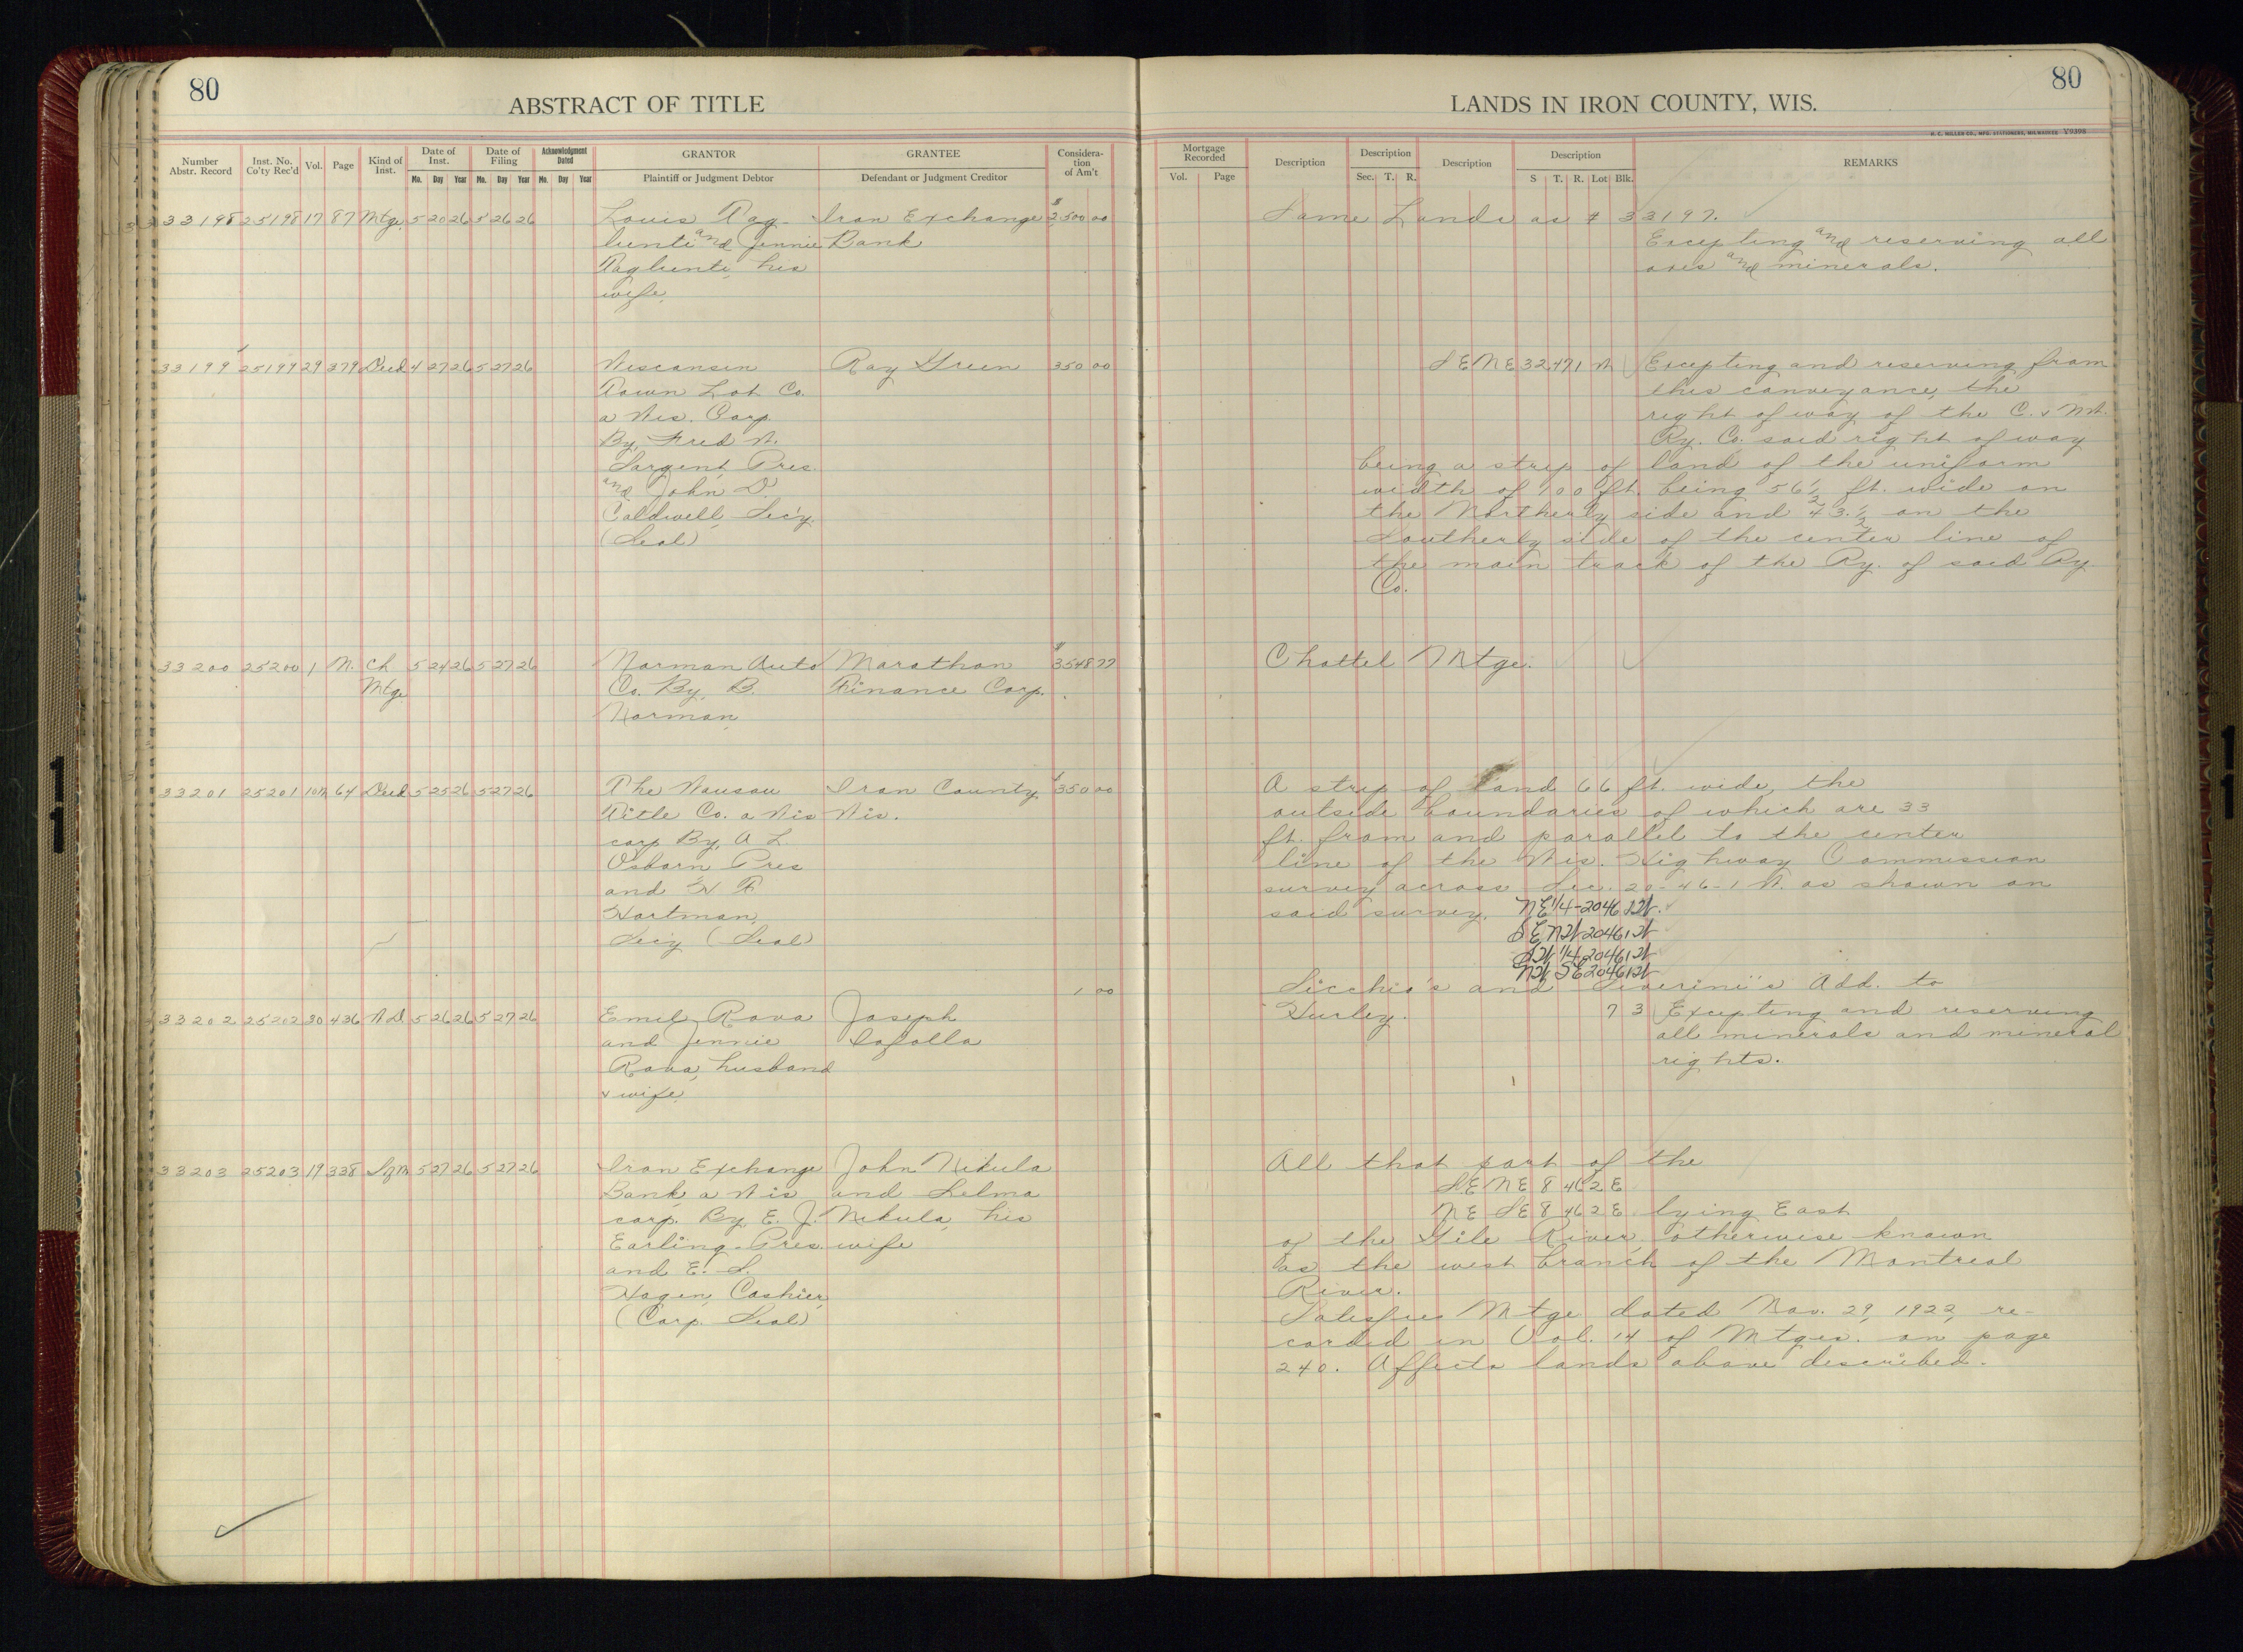 80
ABSTRACT OF TITLE
Number Abstr. Record | Inst. No. Co'ty Rec'd | Vol. | Page | Kind of Inst. | Date of Inst. Mo. Day Year | Date of Filing Mo. Day Year | Acknowledgment Dated Mo. Day Year | GRANTOR Plaintiff or Judgment Debtor | GRANTEE Defendant or Judgment Creditor | Consideration of Am't
33198 25198 17 87 Mtge. 5 20 26 5 26 26 Louis Pag- Iron Exchange $2500 00
lienti and Jennie Bank
Paglienti, his
wife,
33199 25199 29 379 Deed 4 27 26 5 27 26 Wisconsin Ray Green 350 00
Town Lot Co.
a Wis. Corp.
By, Fred W.
Sargent, Pres.
and John D.
Caldwell, Sec'y.
(Seal)
33200 25200 1 N. Ch 5 24 26 5 27 26 Norman Auto Marathon $3548 77
Mtge Co. By, B. Finance Corp.
Norman
33201 25201 64 Deed 5 25 26 5 27 26 The Wausau Iron County, $350 00
Title Co. a Wis Wis.
corp By, A L
Osborn Pres
and H F
Hartman,
Secy (Seal)
1 00
33202 25202 30 436 W.D. 5 26 26 5 27 26 Emil Rova Joseph
and Jennie
Rova, husband
& wife,
33203 25203 19 338 5 27 26 5 27 26 Iron Exchange John Nikula
Bank, a Wis and Selma
corp. By, E. J. Nikula, his
Earling Pres. wife
and E. S.
Hagen, Cashier,
(Corp. Seal)
80
LANDS IN IRON COUNTY, WIS.
H. C. MILLER CO., MFG. STATIONERS, MILWAUKEE Y9398
Mortgage Recorded Vol. Page | Description | Description Sec. T. R. | Description | Description S T. R. Lot Blk. | REMARKS
Same Lands as # 33197.
Excepting and reserving all
ores and minerals.
SE NE 32 47 1 W Excepting and reserving from
this conveyance, the
right of way of the C. & N.W.
Ry. Co. said right of way
being a strip of land of the uniform
width of 100 ft. being 56 1/2 ft. wide on
the Northerly side and 43 1/2 on the
Southerly side of the center line of
the main track of the Ry. of said Ry.
Co.
Chattel Mtge.
A strip of land 66 ft. wide, the
outside boundaries of which are 33
ft. from and parallel to the center
line of the Wis. Highway Commission
survey across Sec. 20-46-1 W. as shown on
said survey. NE 1/4-20 46 1W.
SE NW 20 46 1W
SW 1/4 20 46 1W
NW SE 20 46 1W
Sicchio's and Severini's Add. to
Hurley. 7 3 Excepting and reserving
all minerals and mineral
rights.
All that part of the
SE NE 8 46 2 E
NE SE 8 46 2 E lying East
of the Gile River, otherwise known
as the west branch of the Montreal
River.
Satisfies Mtge dated Nov. 29, 1922, re-
corded in Vol. 14 of Mtges. on page
240. Affects lands above described.